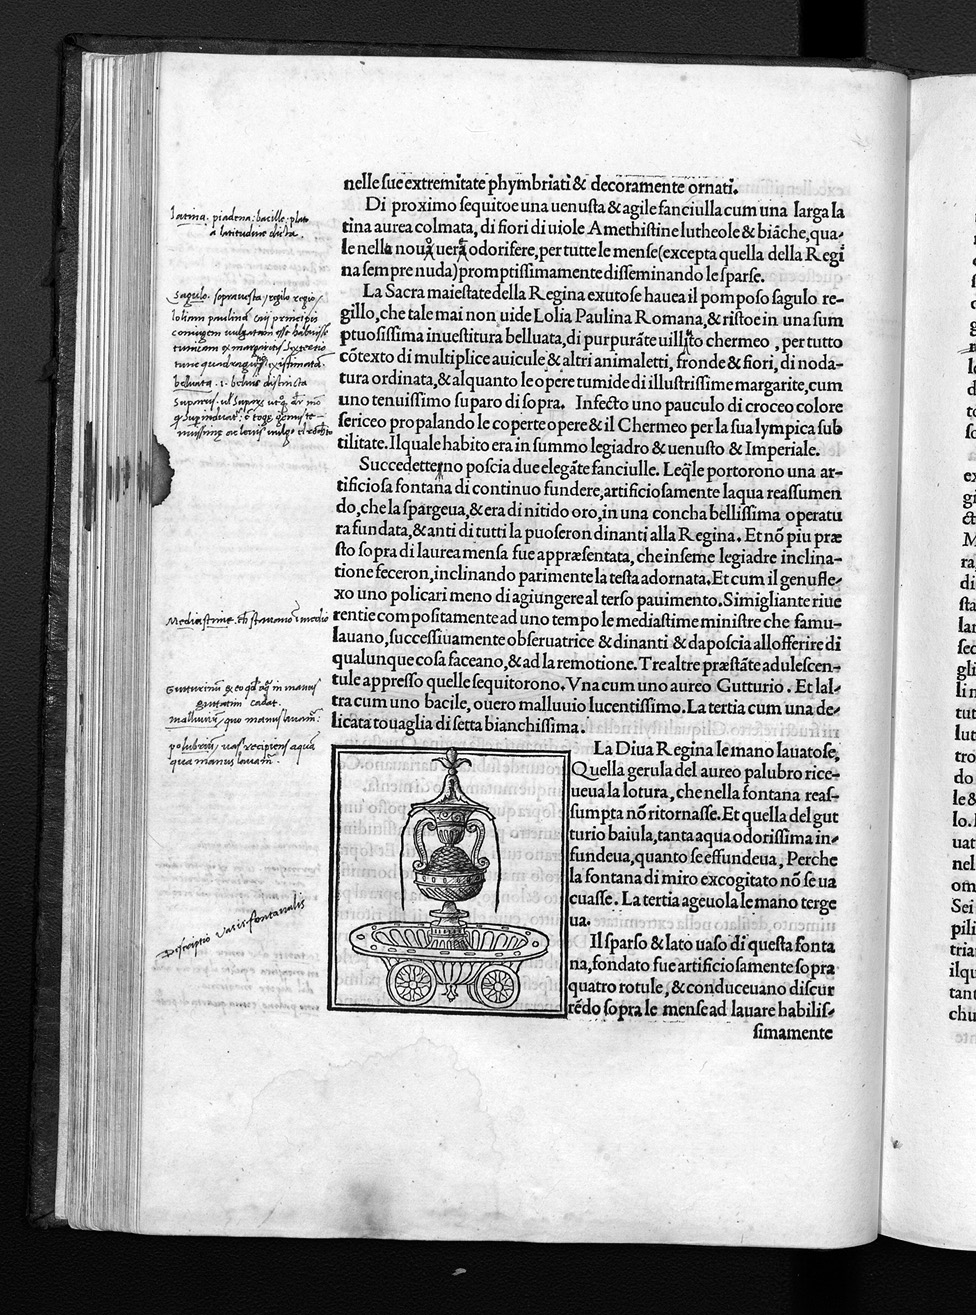 nelle sue extremitate phymbriati & decoramente ornati.
Di proximo sequitoe una uenusta & agile fanciulla cum una larga la
tina aurea colmata, di fiori di uiole Amethistine lutheole & biāche, qua-
le nella noua uera odorifere, per tutte le mense (excepta quella della Regi
na sempre nuda) promptissimamente disseminando le sparse.
La Sacra maiestate della Regina exutose hauea il pomposo sagulo re-
gillo, che tale mai non uide Lolia Paulina Romana, & ristoe in una sum
ptuosissima inuestitura belluata, di purpurāte uillito chermeo, per tutto
cōtexto di multiplice auicule & altri animaletti, fronde & fiori, di noda-
tura ordinata, & alquanto le opere tumide di illustrissime margarite, cum
uno tenuissimo suparo di sopra. Infecto uno pauculo di croceo colore
sericeo propalando le coperte opere & il Chermeo per la sua lympica sub
tilitate. Il quale habito era in summo legiadro & uenusto & Imperiale.
Succedetterno poscia due elegāte fanciulle. Leq̄le portorono una ar-
tificiosa fontana di continuo fundere, artificiosamente laqua reassumen
do, che la spargeua, & era di nitido oro, in una concha bellissima operatu
ra fundata, & anti di tutti la puoseron dinanti alla Regina. Et nō piu præ
sto sopra di laurea mensa fue appræsentata, che inseme legiadre inclina-
tione feceron, inclinando parimente la testa adornata. Et cum il genufle-
xo uno policari meno di agiungere al terso pauimento. Simigliante riue
rentie compositamente ad uno tempo le mediastime ministre che famu-
lauano, successiuamente obseruatrice & dinanti & daposcia allofferire di
qualunque cosa faceano, & ad la remotione. Tre altre præstāte adulescen-
tule appresso quelle sequitorono. Vna cum uno aureo Gutturio. Et lal-
tra cum uno bacile, ouero malluuio lucentissimo. La tertia cum una de-
licata touaglia di setta bianchissima.
La Diua Regina le mano lauatose,
Quella gerula del aureo palubro rice-
ueua la lotura, che nella fontana reas-
sumpta nō ritornasse. Et quella del gut
turio baiula, tanta aqua odorissima in-
fundeua, quanto se effundeua, Perche
la fontana di miro excogitato nō se ua
cuasse. La tertia ageuola le mano terge
ua.
Il sparso & lato uaso di questa fonta
na, fondato fue artificiosamente sopra
quatro rotule, & conduceuano discur
rēdo sopra le mense ad lauare habilis-
simamente
Latina. piadena: bacille: plato
a latitudine dicta.
Sagulo. sopravesta / regilo regio /
loliam paulinam
belluata. .i. beluis distincta
Mediastine.
Gutturium
cadat.
malluvium, quo manus lavam̄:
polubrum, vas recipiens aquā
qua manus lavam̄.
Descriptio Vasis fontanalis